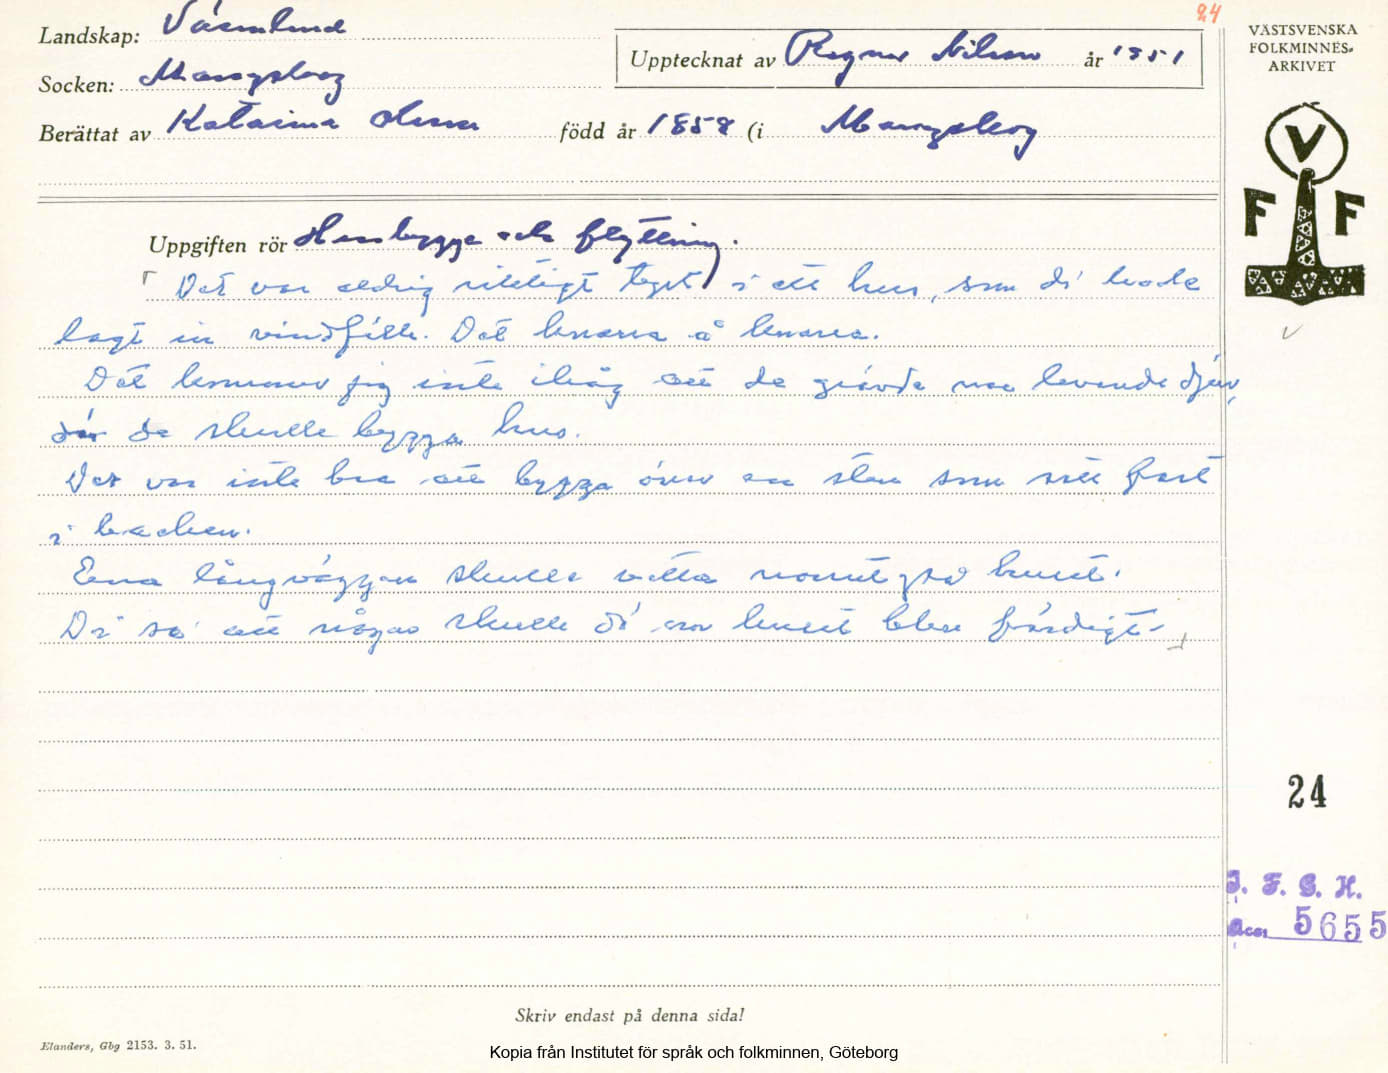 24
Landskap: Värmland
Socken: Mangskog
Upptecknat av Ragnar Nilsson år 1951
Berättat av Katarina Olsson född år 1858 (i Mangskog
VÄSTSVENSKA
FOLKMINNES-
ARKIVET
V
F F
Uppgiften rör Husbygge och flyttning.
"Det var aldrig riktigt tyst i ett hus, som di hade
lagt in vindfälle. Det knarra å knarra.
Det kommer jag inte ihåg att de grävde ner levande djur,
där de skulle bygga hus.
Det var inte bra att bygga över en sten som satt fast
i backen.
Ena långväggen skulle vetta norrut på huset.
Di sa att någon skulle dö om huset blev färdigt.
24
I. F. G. H.
Acc. 5655
Skriv endast på denna sida!
Elanders, Gbg 2153. 3. 51.
Kopia från Institutet för språk och folkminnen, Göteborg